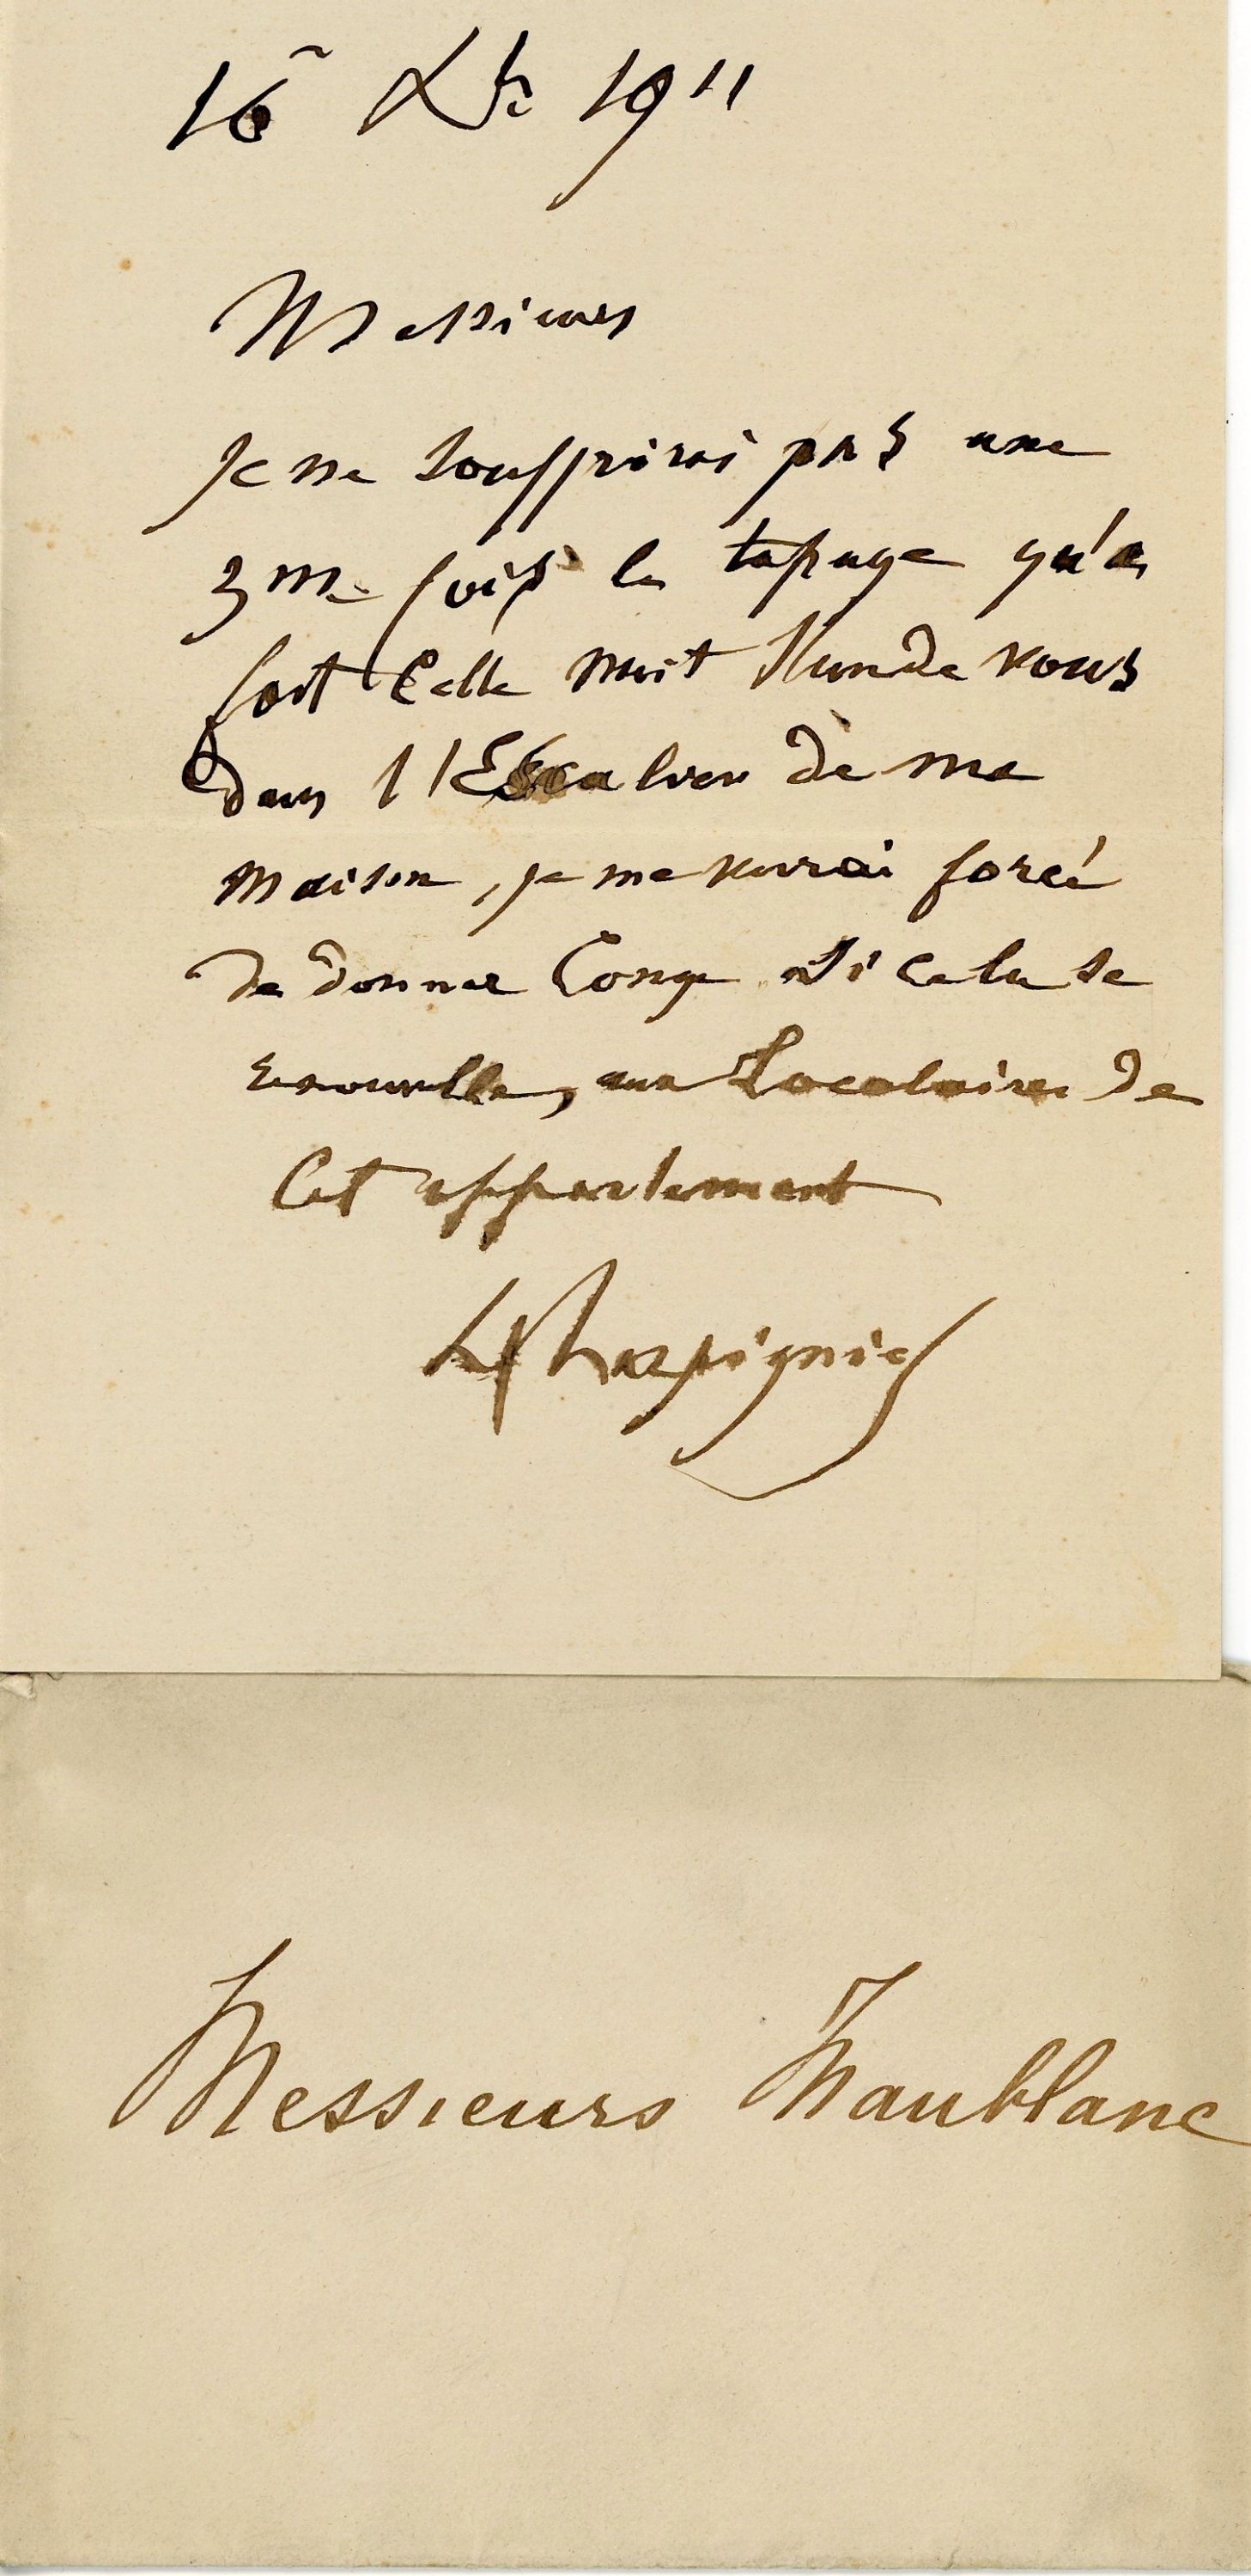 16 Xbre 1911
Messieurs
je ne souffrirai pas une
3me fois le tapage qu'a
fait cette nuit l'un de vous
dans l'Escalier de ma
maison, je me verrai forcé
de donner Congé si cela se
renouvelle, aux Locataires de
Cet appartement
hharpignies
Messieurs Maublanc